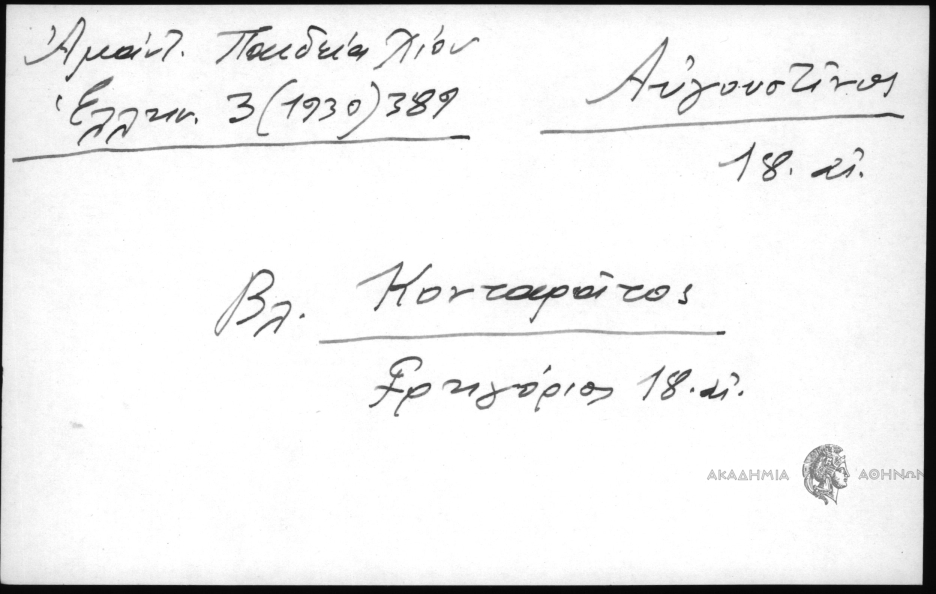 Ἀμάντ. Παιδεία Χίον
Ἑλλην. 3 (1930) 389
Αὐγουστῖνος
18. αἰ.
Βλ. Κονταρᾶτος
Γρηγόριος 18. αἰ.
ΑΚΑΔΗΜΙΑ ΑΘΗΝΩΝ